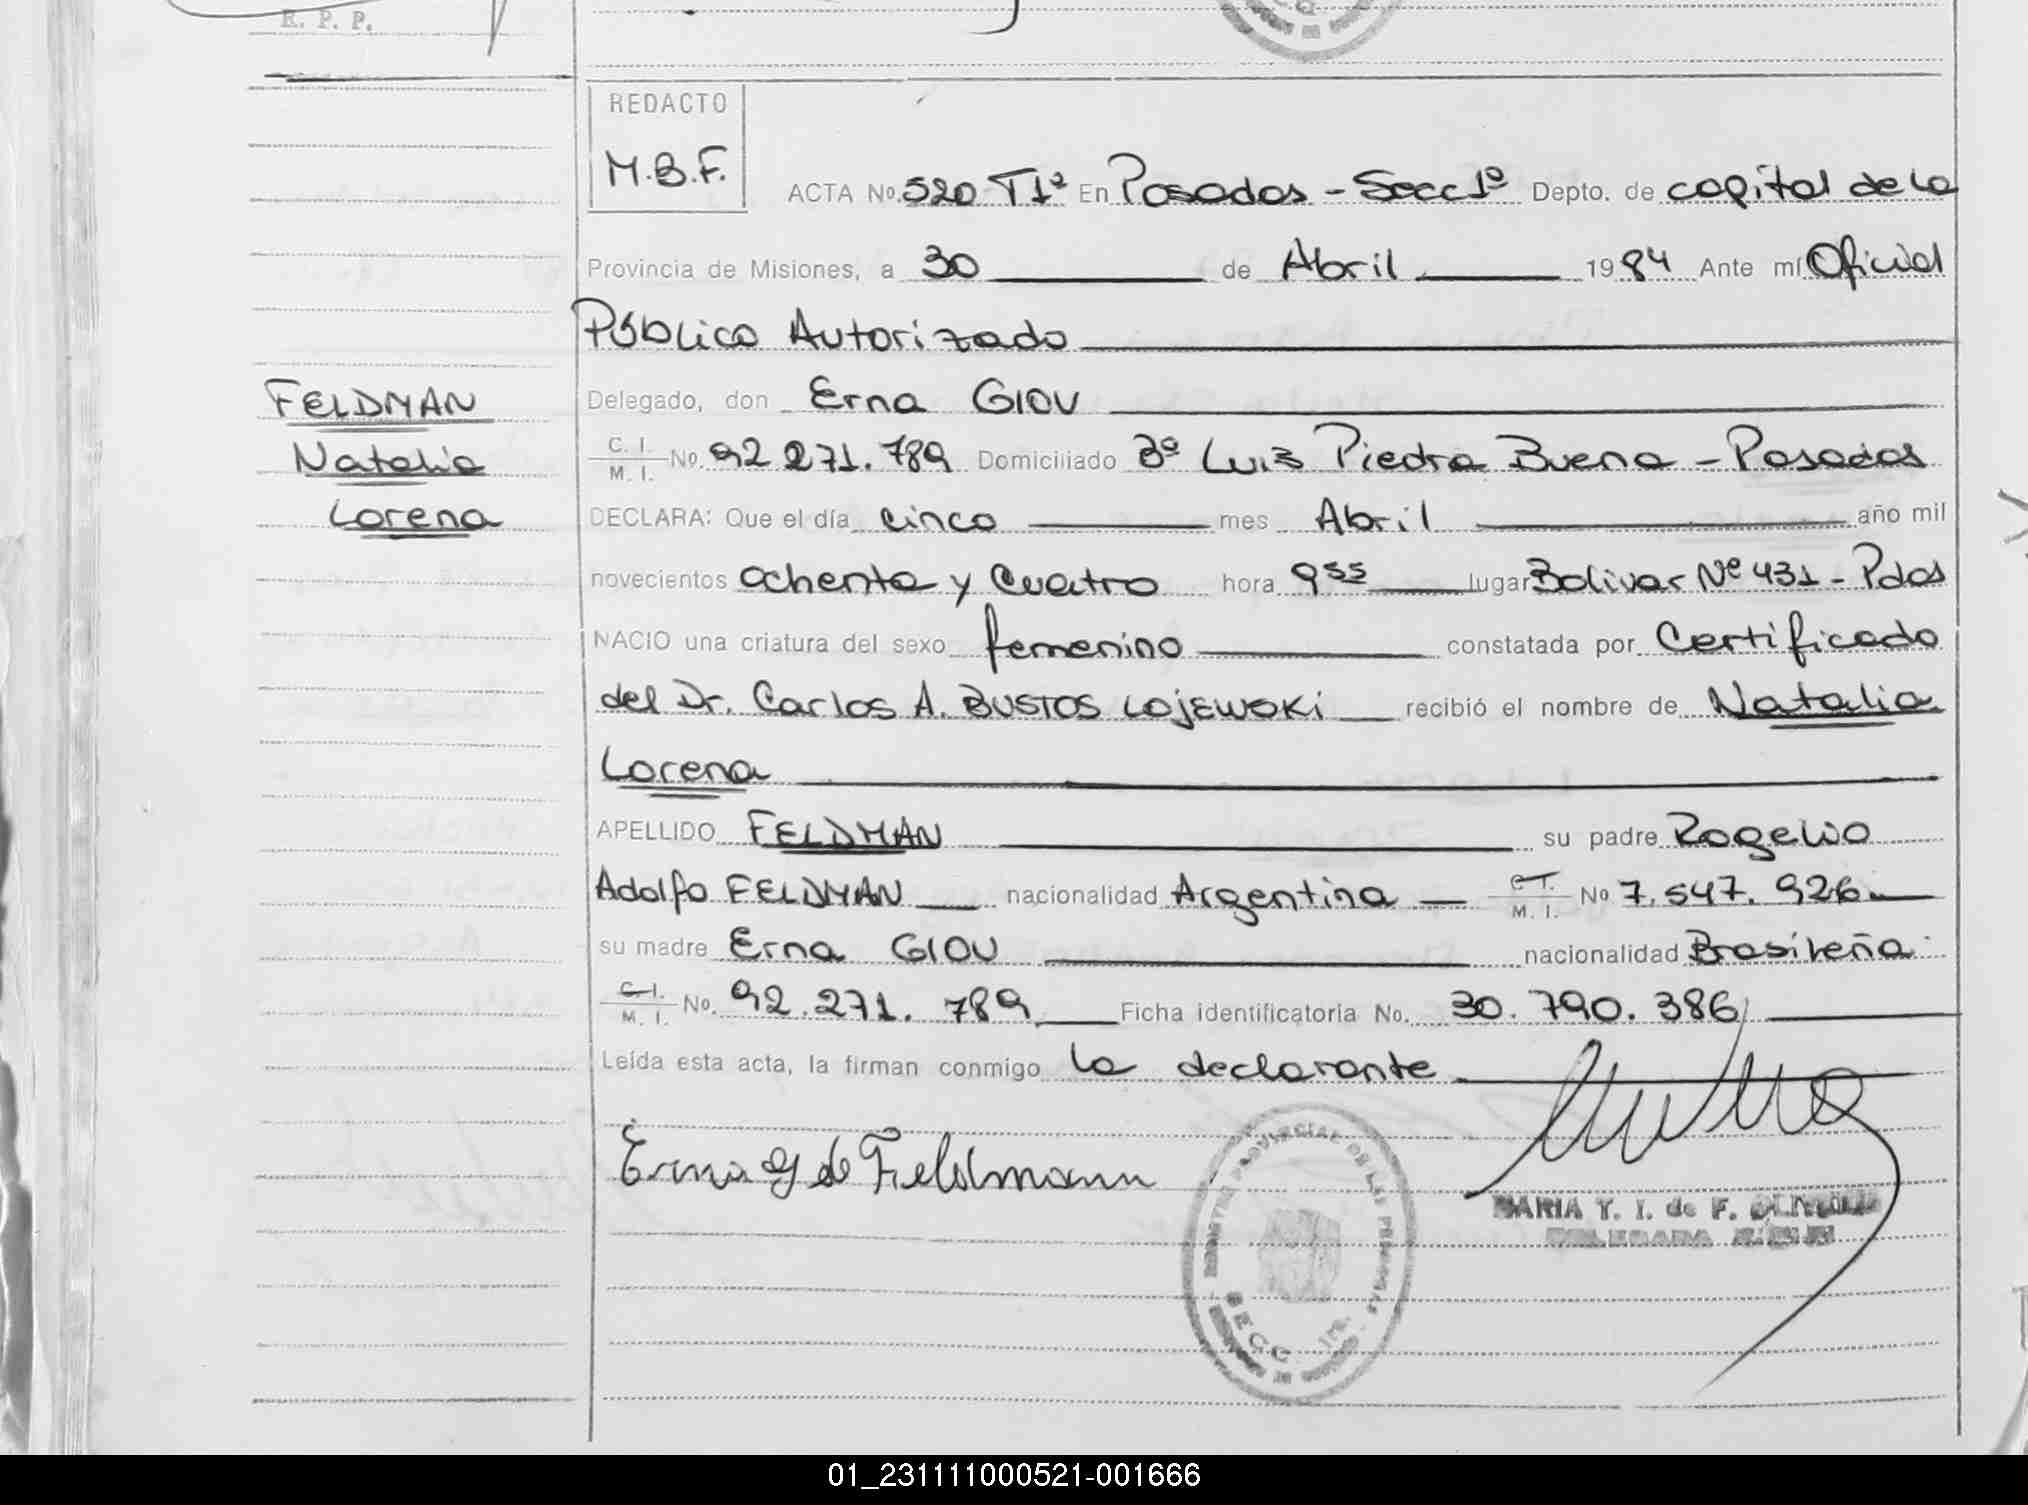 R. P. P.
REDACTO
M.B.F.
ACTA No. 520 T1º En Posadas - Secc 1º Depto. de capital de la
Provincia de Misiones, a 30 de Abril 1984 Ante mí Oficial
Público Autorizado
FELDMAN
Natalia
Lorena
Delegado, don Erna GIOV
C. I.
M. I. No. 92 271.789 Domiciliado Bº Luis Piedra Buena - Posadas
DECLARA: Que el día cinco mes Abril año mil
novecientos ochenta y cuatro hora 9 55 lugar Bolivar Nº 431 - Pdas
NACIO una criatura del sexo femenino constatada por Certificado
del Dr. Carlos A. BUSTOS LOJEWSKI recibió el nombre de Natalia
Lorena
APELLIDO FELDMAN su padre Rogelio
Adolfo FELDMAN nacionalidad Argentina C. I.
M. I. No 7.547.926
su madre Erna GIOV nacionalidad Brasileña
C. I.
M. I. No. 92.271.789 Ficha identificatoria No. 30.790.386
Leída esta acta, la firman conmigo la declarante
Erna G de Feldmann
REGISTRO PROVINCIAL DE LAS PERSONAS
SECC. 1ra.
MARIA Y. I. de F.
DELEGADA
01_231111000521-001666